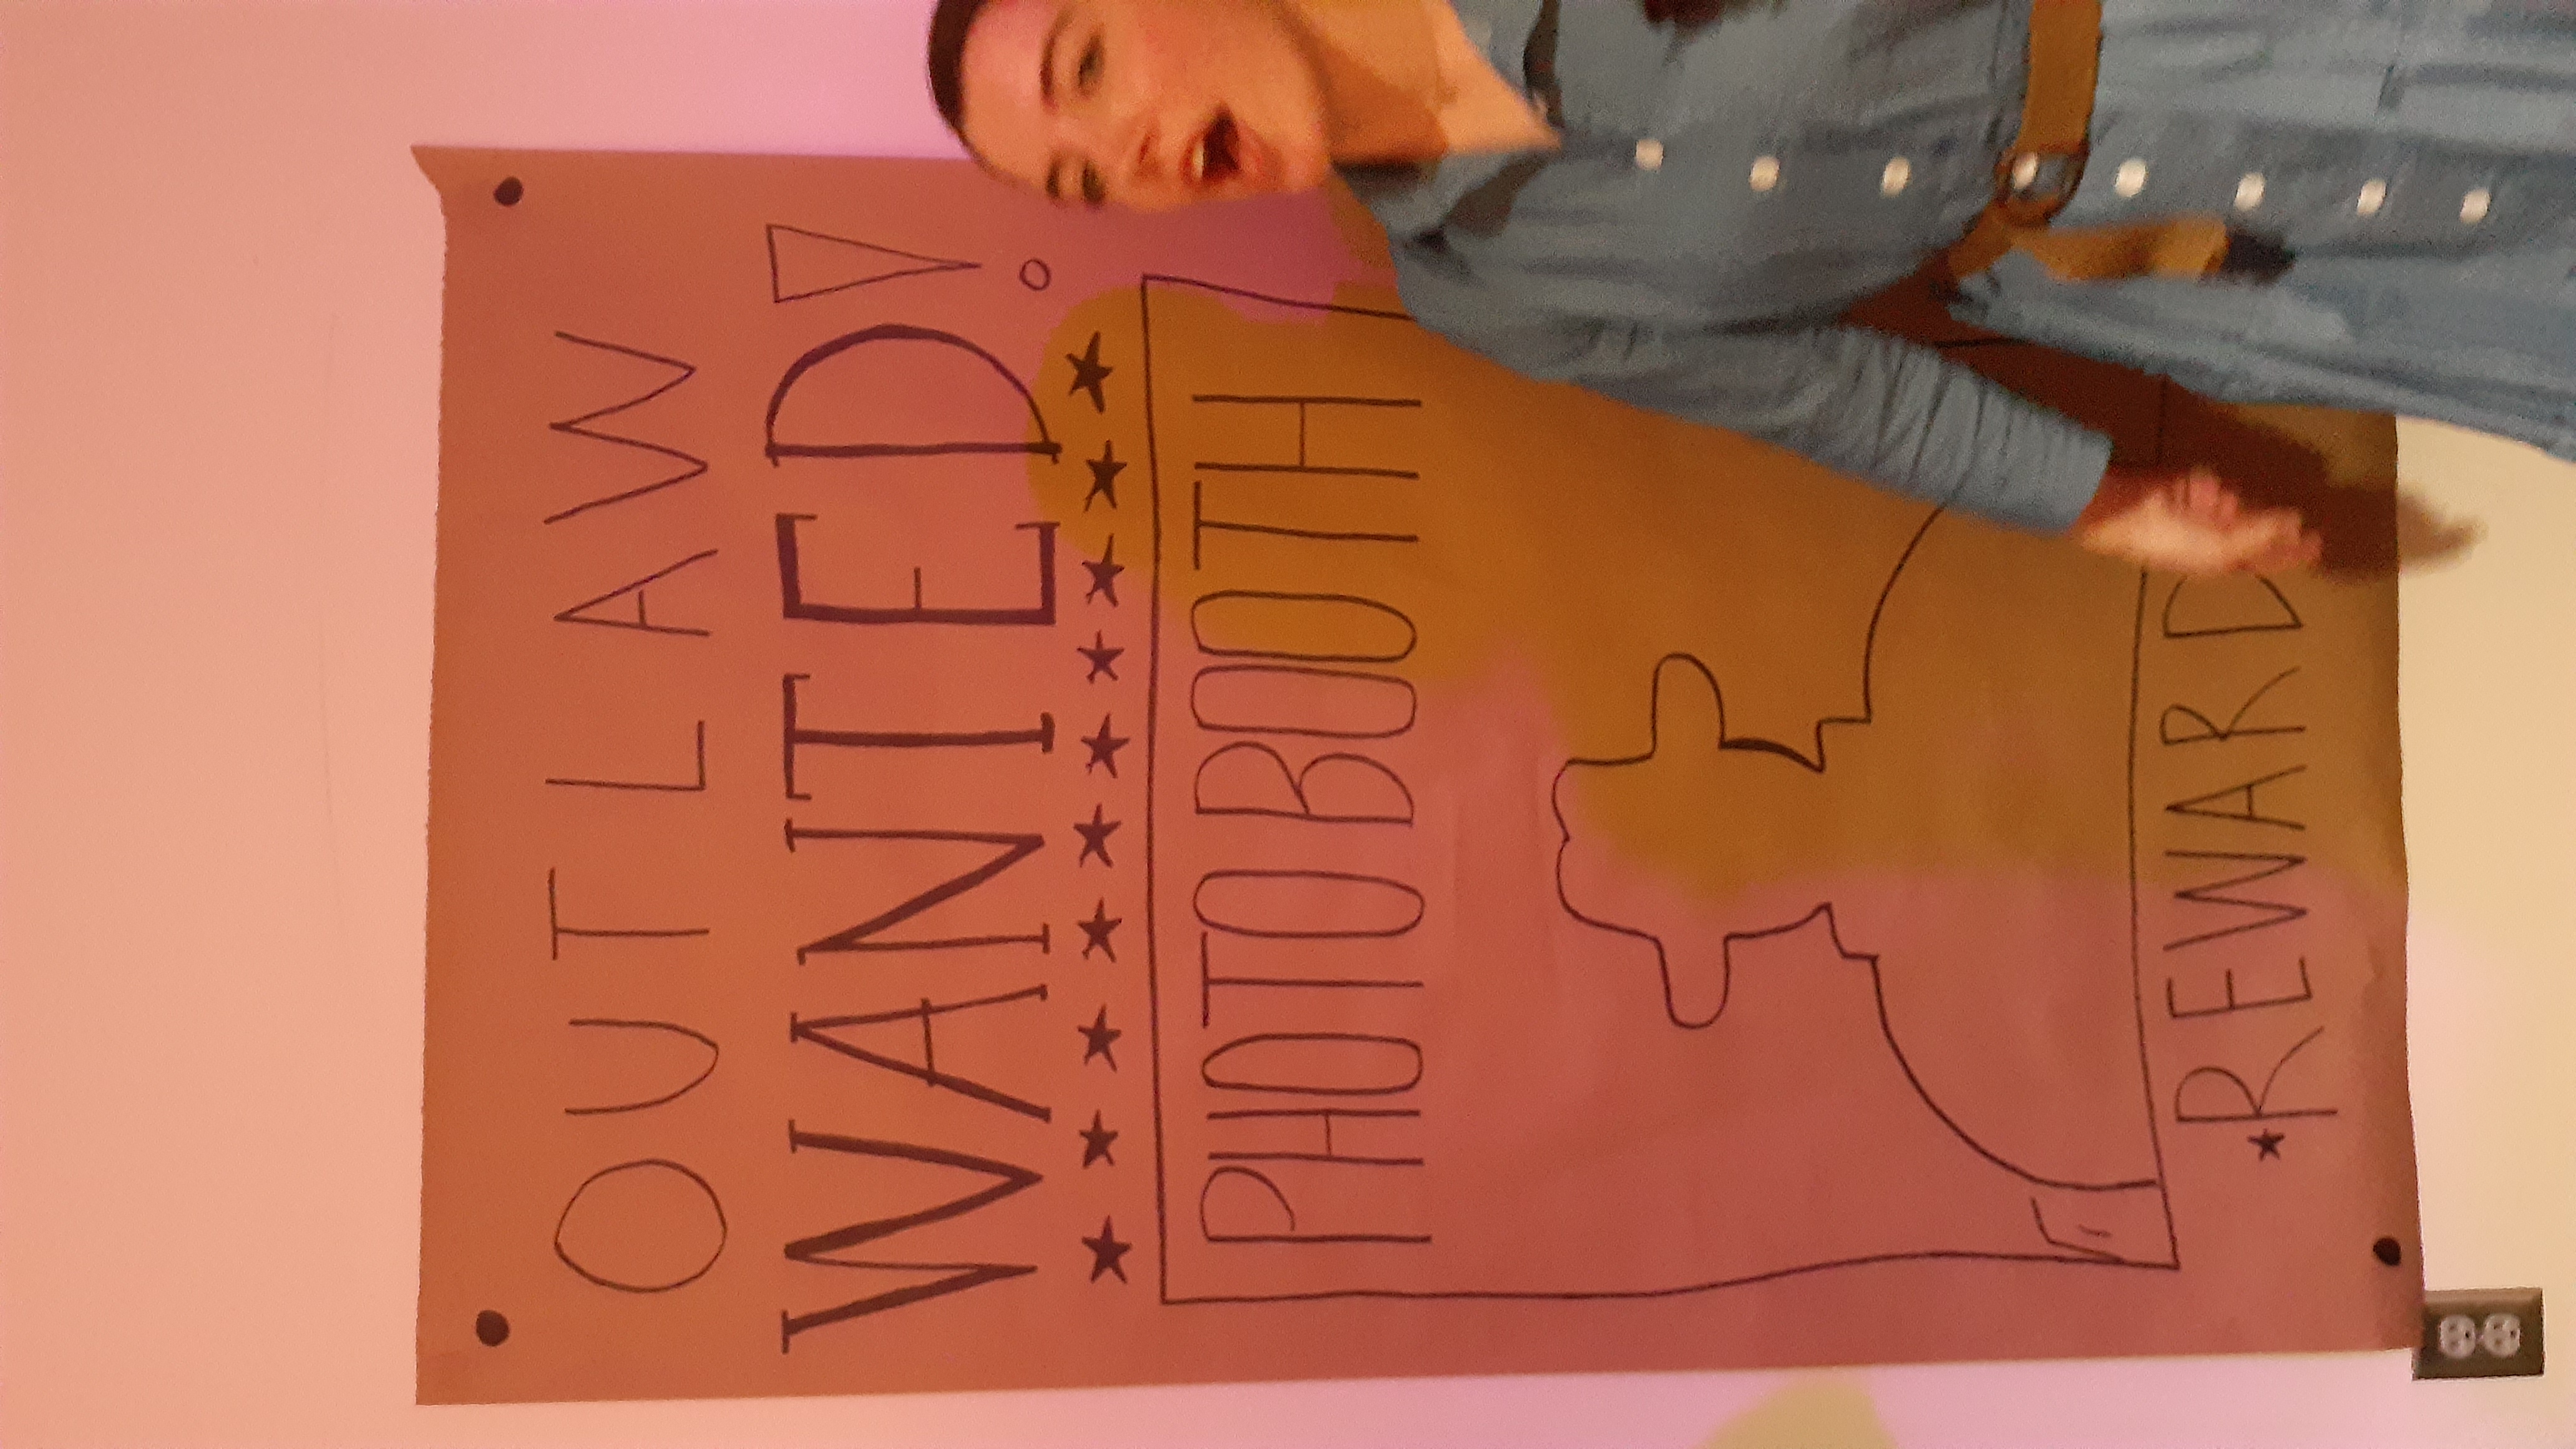 OUTLAW
WANTED!
PHOTO BOOTH
REWARD